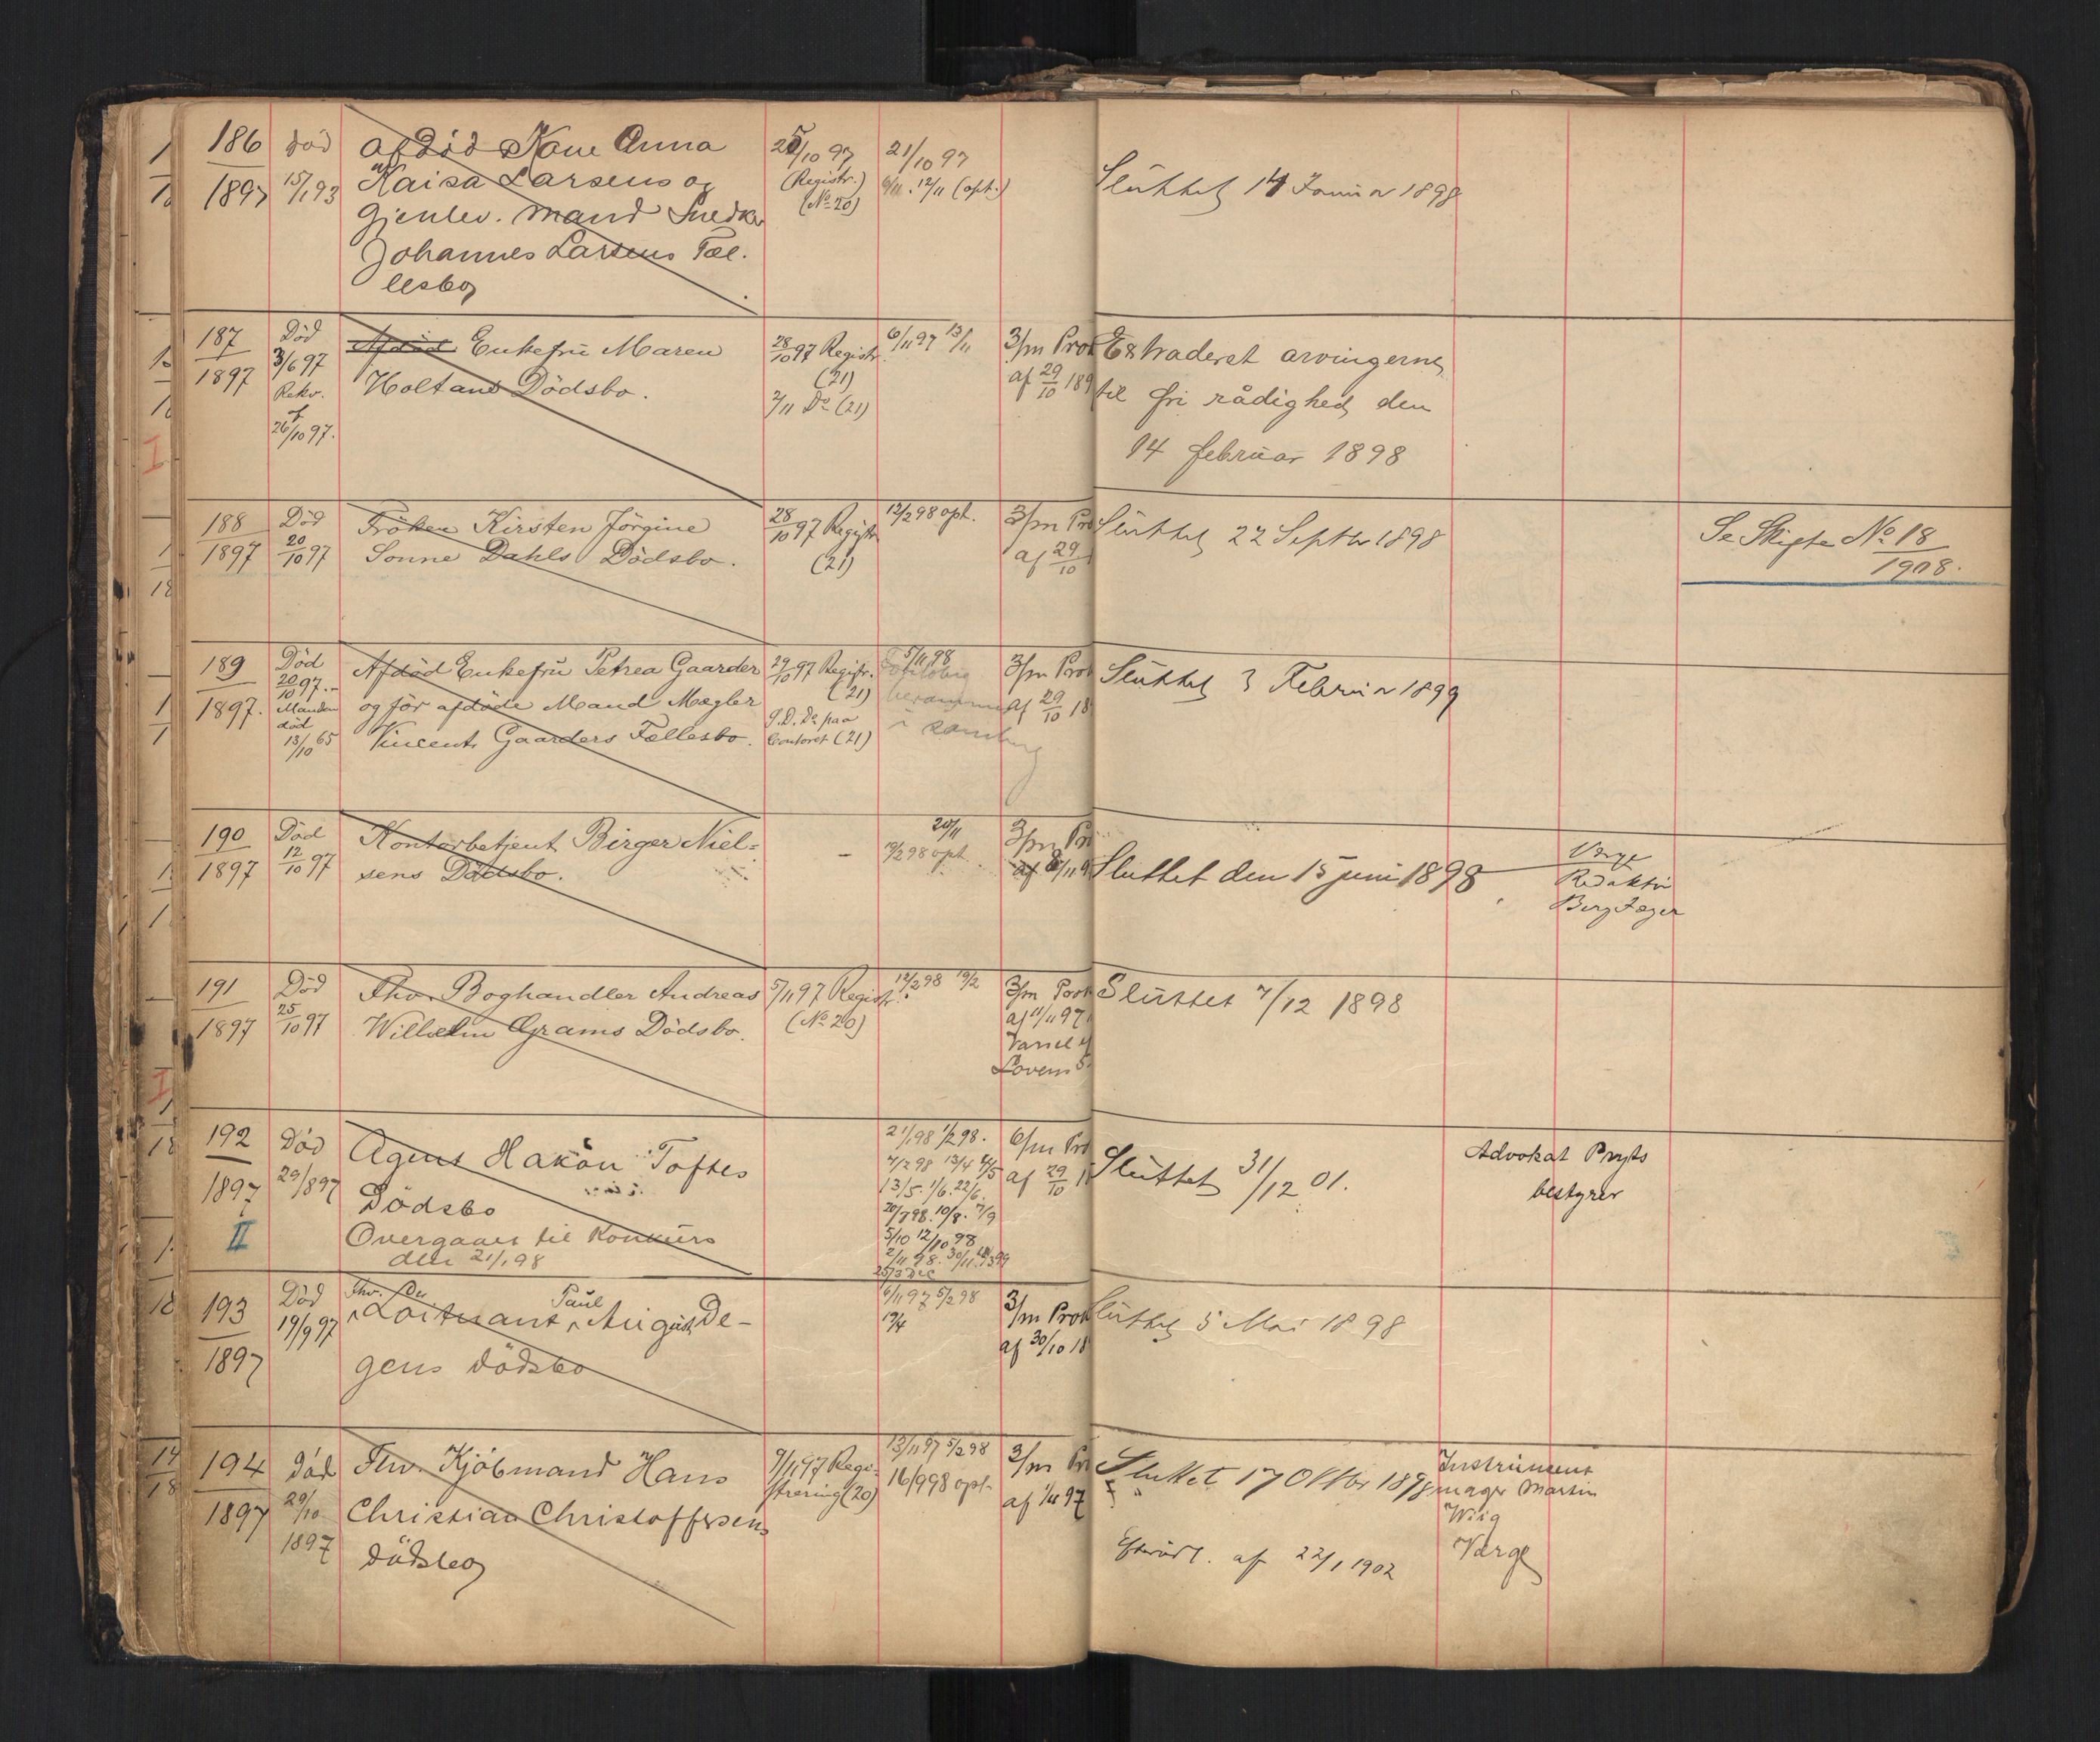 186
1897
død
15/1 93
Afdød Kone Anna
Kaisa Larsens og
Gjenlev. Mand Snedker
Johannes Larsens Fæl.
lesbo
25/10 97
(Registr.)
(No 20)
21/10 97
6/11. 12/11 (opt.)
Sluttet 14 Januar 1898
187
1897
Død
3/6 97
Rekv.
26/10 97.
Afdød Enkefru Maren
Holtans Dödsbo.
28/10 97 Registr.
(21)
2/11 Do (21)
6/11 97 13/11
3/m Prok
af 29/10 189
Extraderet arvingerne
til fri rådighed den
14 februar 1898
188
1897
Död
20/10 97
Fröken Kirsten Jörgine
Sonne Dahls Dödsbo.
28/10 97 Registr
(21)
12/2 98 opt.
3/m Pro
af 29/10
Sluttet 22 Septbr 1898
Se Skifte No 18
1908.
189
1897.
Död
20/10 97.-
Manden
död
13/10 65
Afdöd Enkefru Petrea Gaarder
og för afdöde Mand Mægler
Vincent Gaarders Fællesbo.
29/10 97 Registr.
(21)
S.D. Do paa
Contoret (21)
5/11 98
3/m Prok
af 29/10 18
Sluttet 3 Februar 1899
190
1897
Död
12/10 97
Kontorbetjent Birger Niel=
sens Dödsbo.
-
20/11
19/2 98 opt.
3/m Pr
af 8/11 9
Sluttet den 15 juni 1898
Værge
Redaktör
Berg Jæger
191
1897
Död
25/10 97
Fhv. Boghandler Andreas
Wilhelm Grams Dödsbo.
5/11 97 Registr.
(No 20)
12/2 98 19/2
3/m Prok
af 11/11 97
Varsel ef
Lovens 5.
Sluttet 7/12 1898
192
1897
II
Död
29/8 97
Agent Hakon Toftes
Dödsbo
Overgaaet til Konkurs
den 21/1 98
21/1 98 1/2 98.
4/2 98 13/4 4/5
13/5. 1/6. 22/6.
20/7 98. 10/8. 7/9
5/10 12/10 98
6/m Pro
af 29/10 1
Sluttet 31/12 01.
Advokat Pryts
bestyrer
193
1897
Död
19/9 97
Fhv.
Paul
Loitnant August De-
gens dödsbo
6/11 97 5/2 98
19/4
3/m Prok
af 30/10 18
Sluttet 5 Mai 1898
194
1897
död
29/10
1897
Fhv. Kjöbmand Hans
Christian Christoffersens
dödsbo
9/11 97 Regi-
strering (20)
13/11 97 5/2 98
16/9 98 opt.
3/m Pr
af 1/11 97
Sluttet 17 Oktbr 1898
af 22/1 1902
Instrument
mager Martin
Wiig
Værge